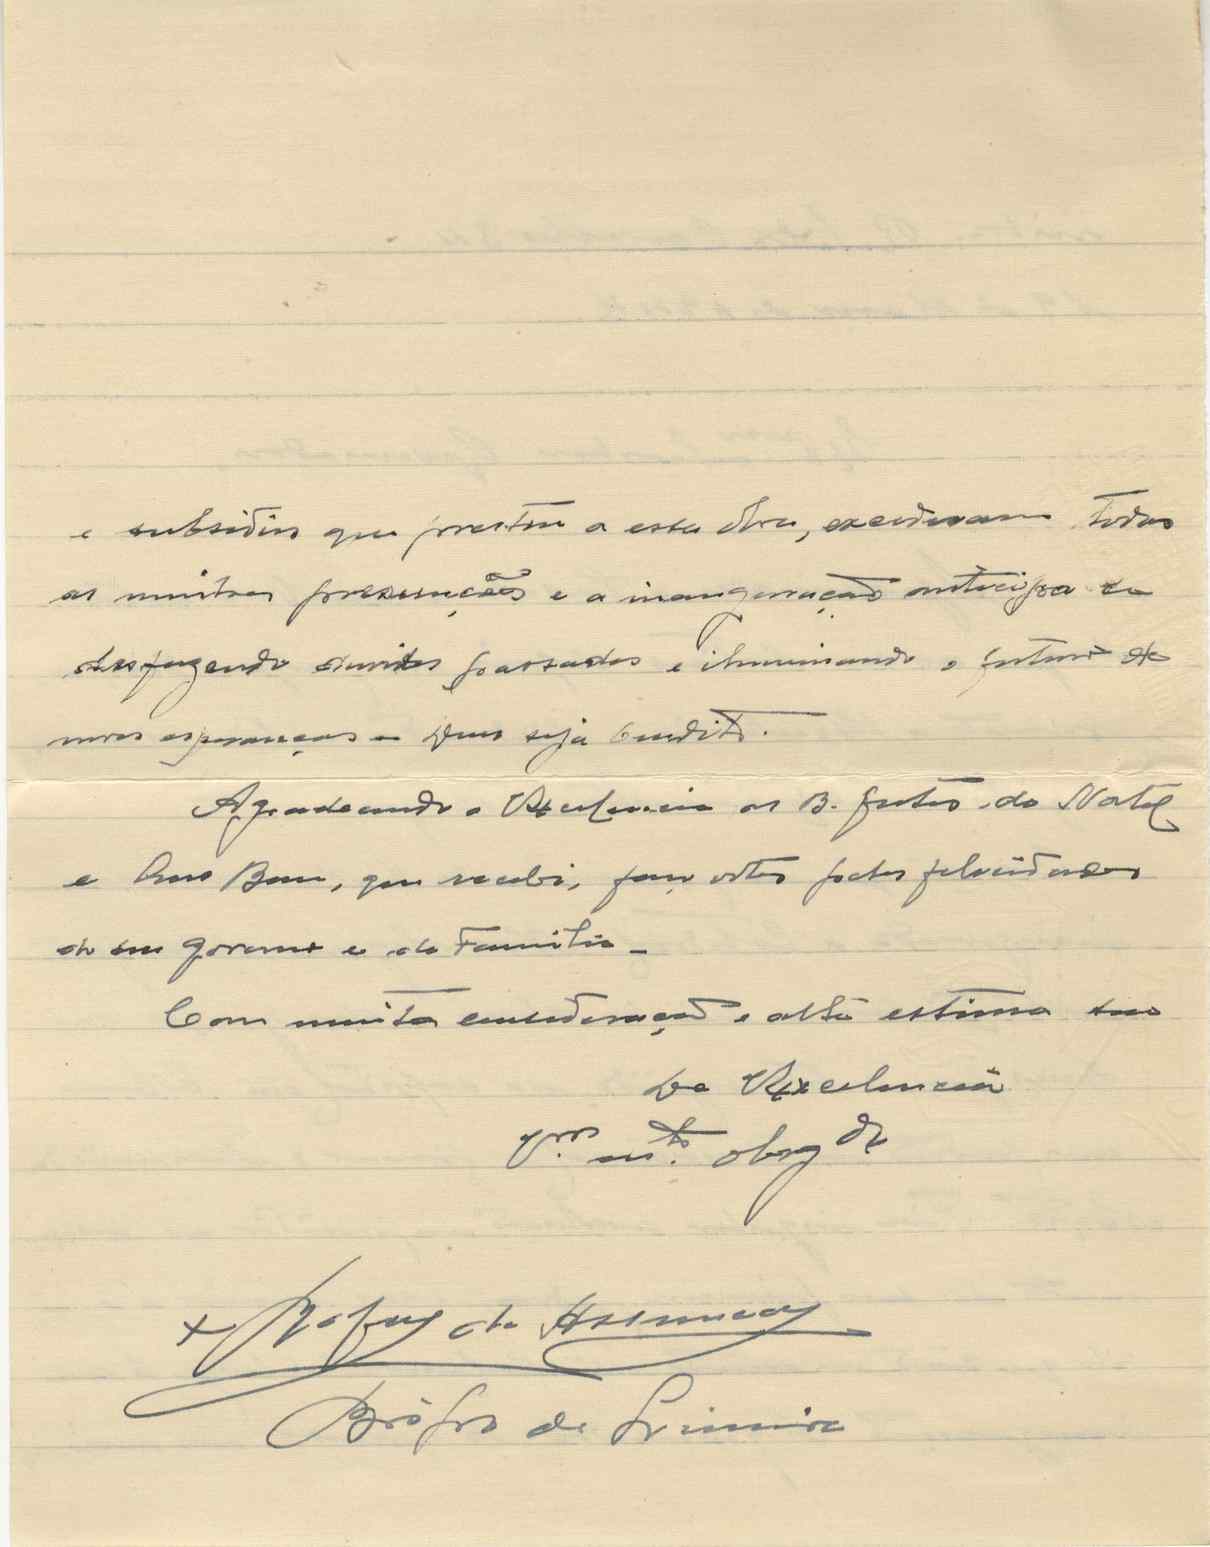 e subsidios que prestou a essa obra, excederam todas
as minhas presunções e a inauguração antecipa se
desfazendo duvidas passadas e illuminando o futuro de
novas esperanças — Deus seja bendito.
Agradecendo a Vexcelencia as B. festas do Natal
e Ano Bom, que recebi, faço votos pelas felicidades
do seu governo e da Familia —
Com muita consideração e alta estima sou
De Vexcelencia
mto. obrgdo
+ de Assumcao
Bispo de Limeira